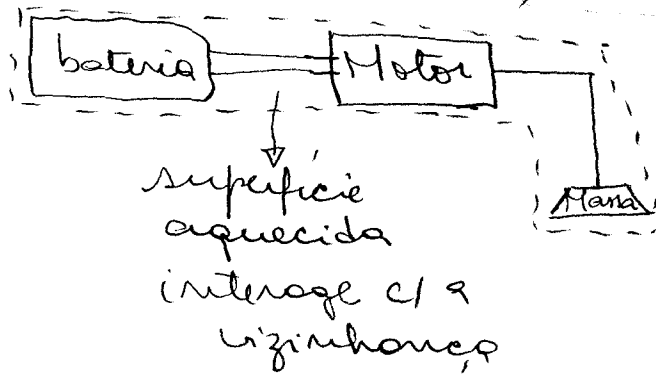 bateria Motor
Massa
superfície
aquecida
interage c/ a
vizinhança